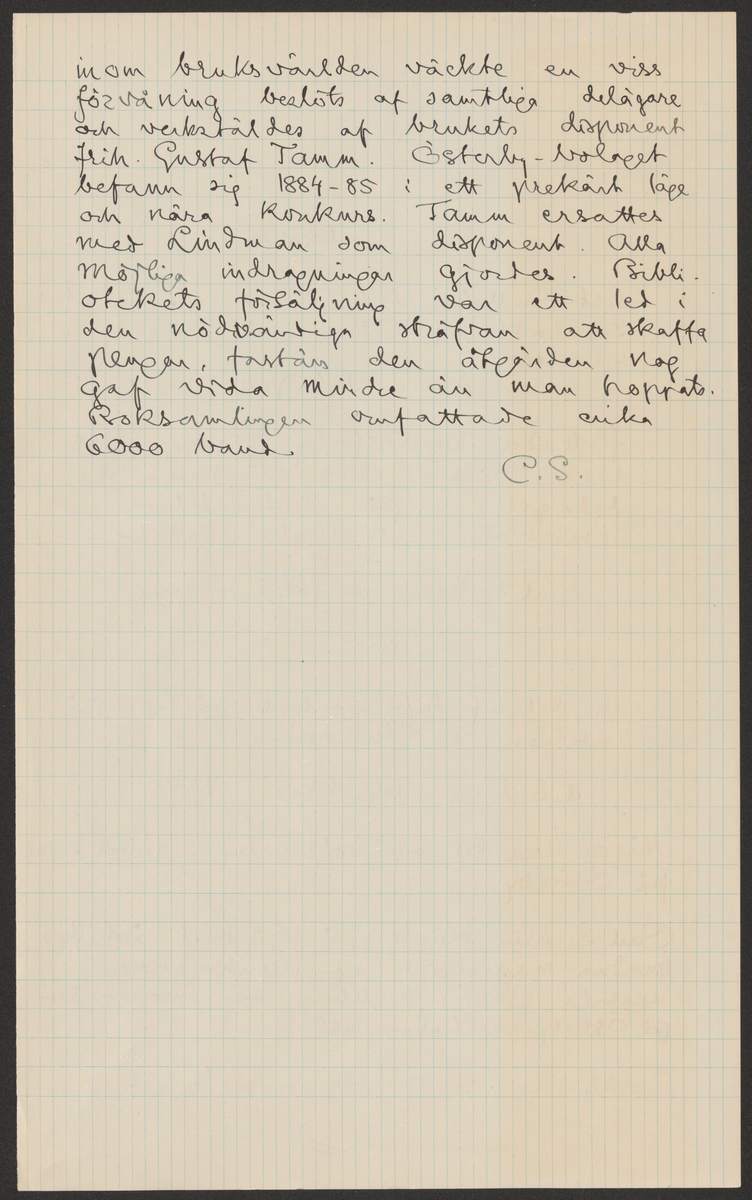 inom bruksvärlden väckte en viss
förvåning beslöts af samtliga delägare
och verkstäldes af brukets disponent
frih. Gustaf Tamm. Österby-bolaget
befann sig 1884-85 i ett prekärt läge
och nära konkurs. Tamm ersattes
med Lindman som disponent. Alla
möjliga indragningar gjordes. Bibli-
otekets försäljning var ett led i
den nödvändiga sträfvan att skaffa
pengar, fastän den åtgärden nog
gaf vida mindre än man hoppats.
Boksamlingen omfattade cirka
6000 band.
C.S.